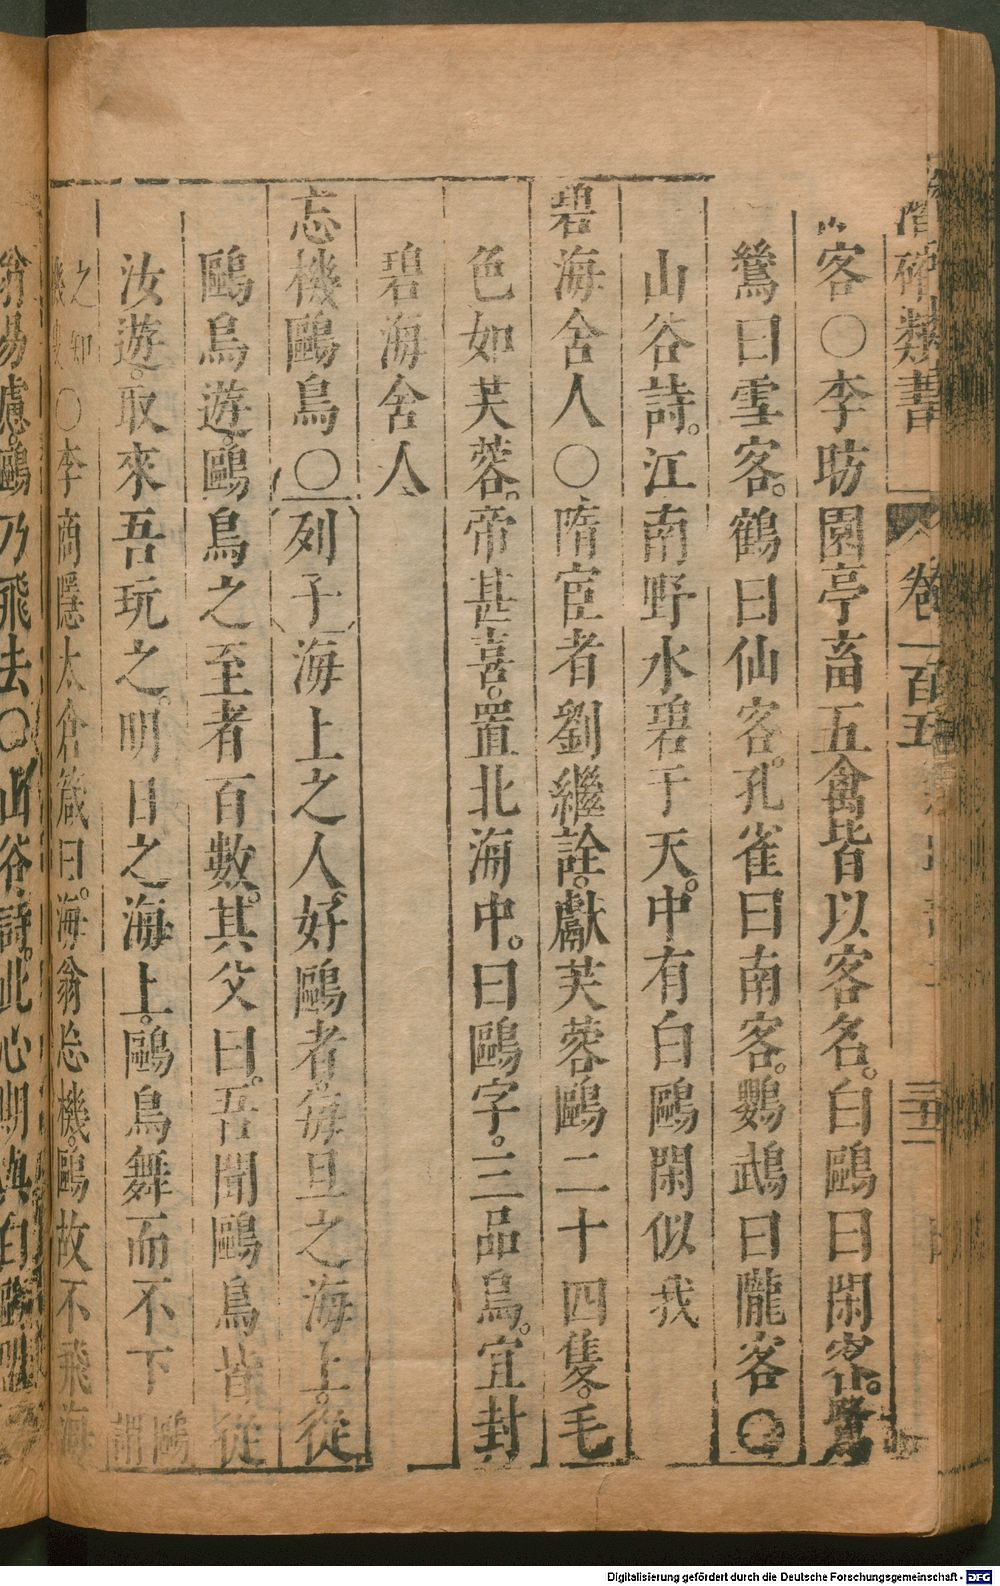 潛確類書 卷一百五
客○李昉園亭畜五禽皆以客名。白鷗曰閑客。鷺
鷥曰雪客。鶴曰仙客。孔雀曰南客。鸚鵡曰隴客○
山谷詩。江南野水碧于天。中有白鷗閑似我
碧海舍人○隋宦者劉繼詮。獻芙蓉鷗二十四隻。毛
色如芙蓉。帝甚喜。置北海中。曰鷗字。三品鳥。宜封
碧海舍人
忘機鷗鳥○列子海上之人好鷗者。每旦之海上。從
鷗鳥遊。鷗鳥之至者百數。其父曰。吾聞鷗鳥皆從
汝遊。取來吾玩之。明日之海上。鷗鳥舞而不下
之知○李商隱太倉箴曰。海翁忘機。鷗故不飛。海
翁易慮。鷗乃飛去○山谷詩。此心期與白鷗盟
Digitalisierung gefördert durch die Deutsche Forschungsgemeinschaft - DFG